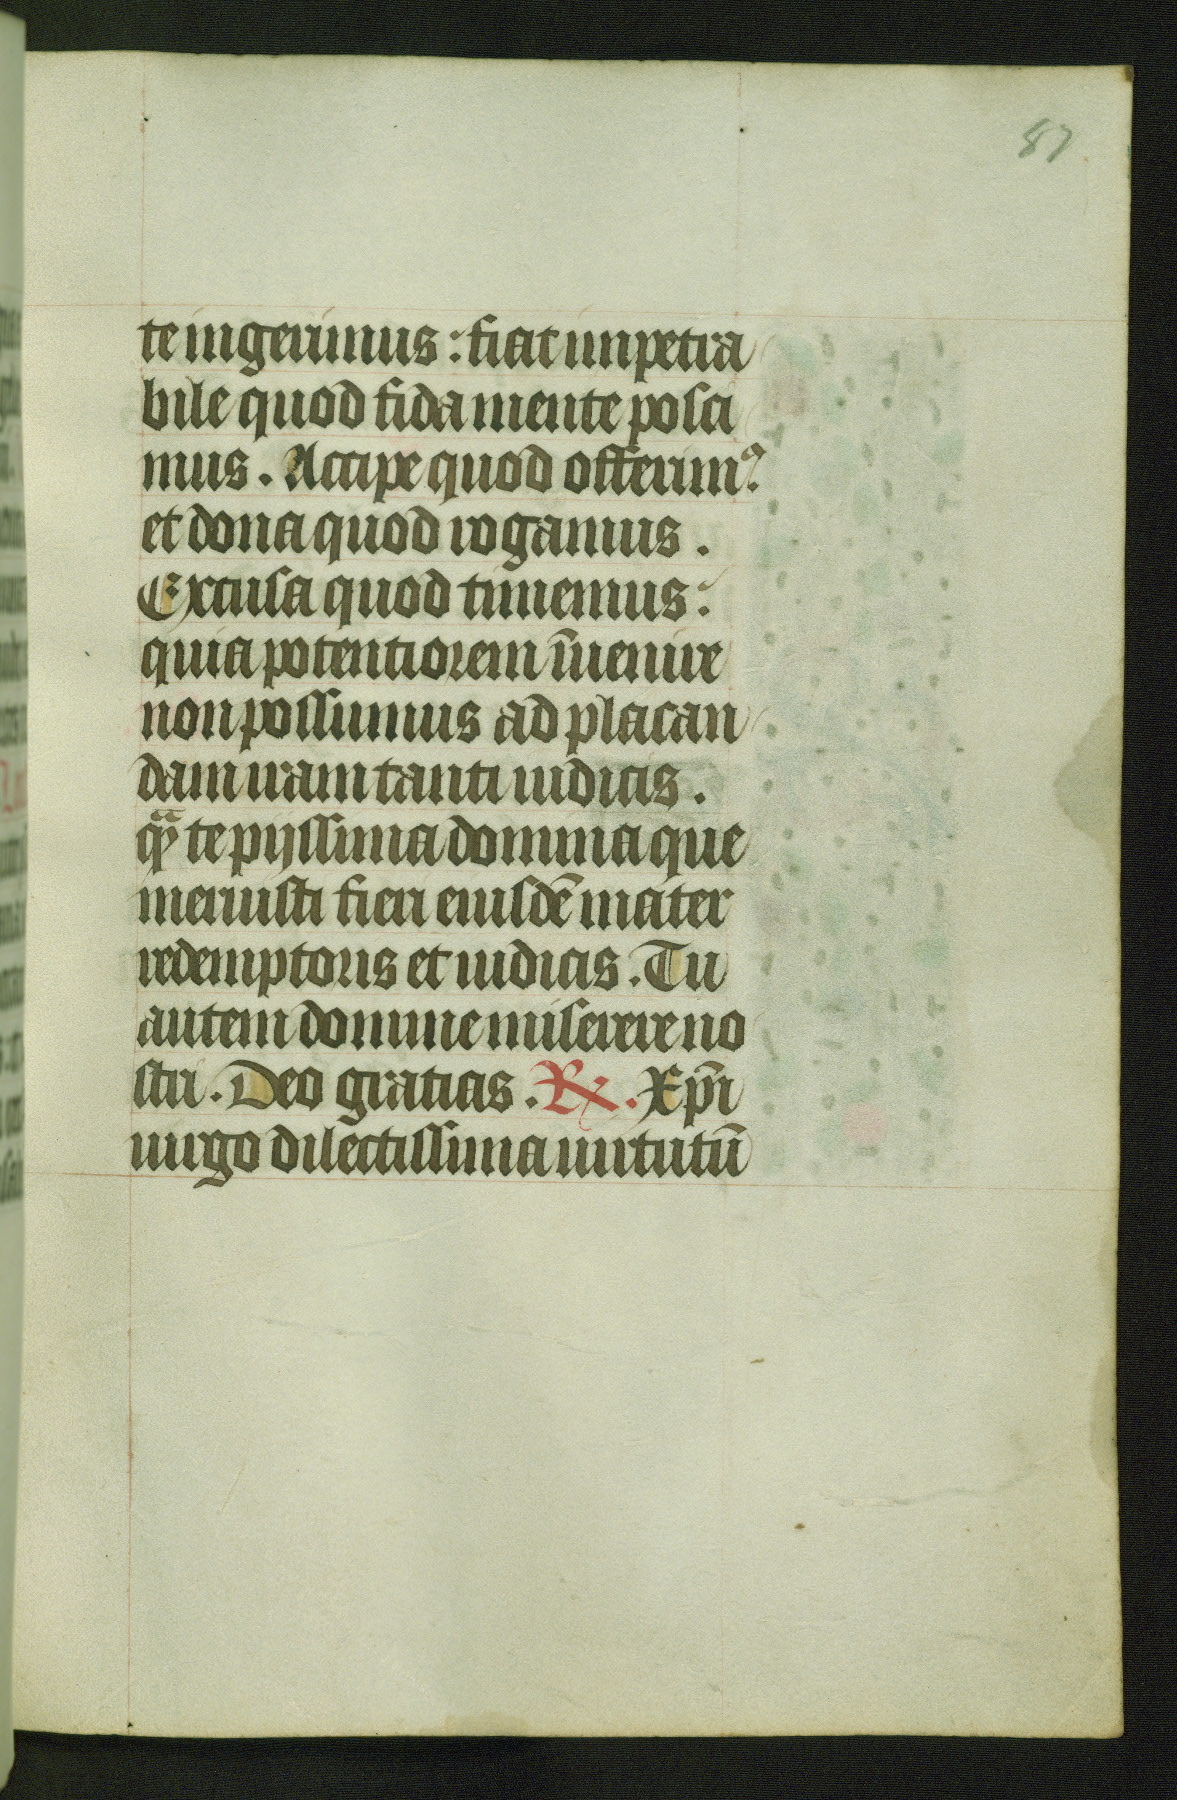 87
te ingerimus: fiat impetra
bile quod fida mente posci
mus. Accipe quod offerimꝰ:
et dona quod rogamus.
Excusa quod timemus:
quia potentiorem īuenire
non possumus ad placan
dam iram tanti iudicis.
qᷓ te pijssima domina que
meruisti fieri eiusdē mater
redemptoris et iudicis. Tu
autem domine miserere no
stri. Deo gratias. ℞. Xp̄i
uirgo dilectissima uirtutū